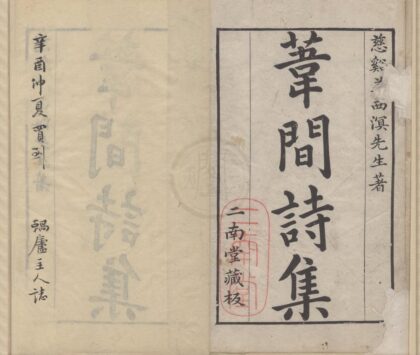 慈谿姜西溟先生著
葦間詩集
二南堂藏板
辛酉仲夏買到
蝸廬主人誌